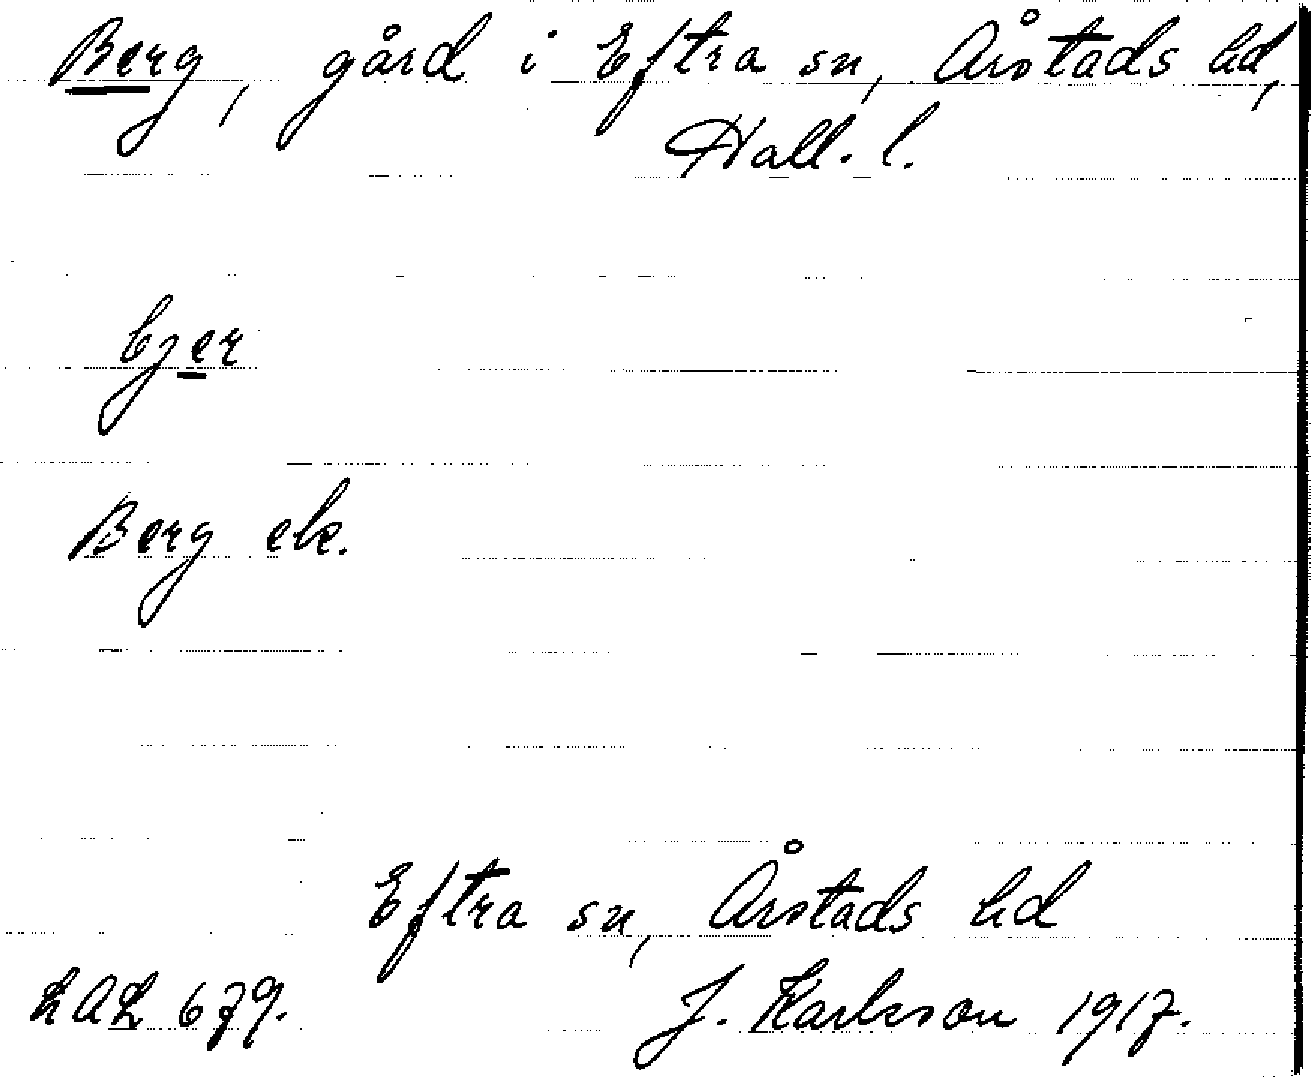 Berg, gård i Eftra sn, Årstads hd,
Hall. l.
bjer
Berg ek.
Eftra sn, Årstads hd
LAL 679. J. Karlsson 1917.